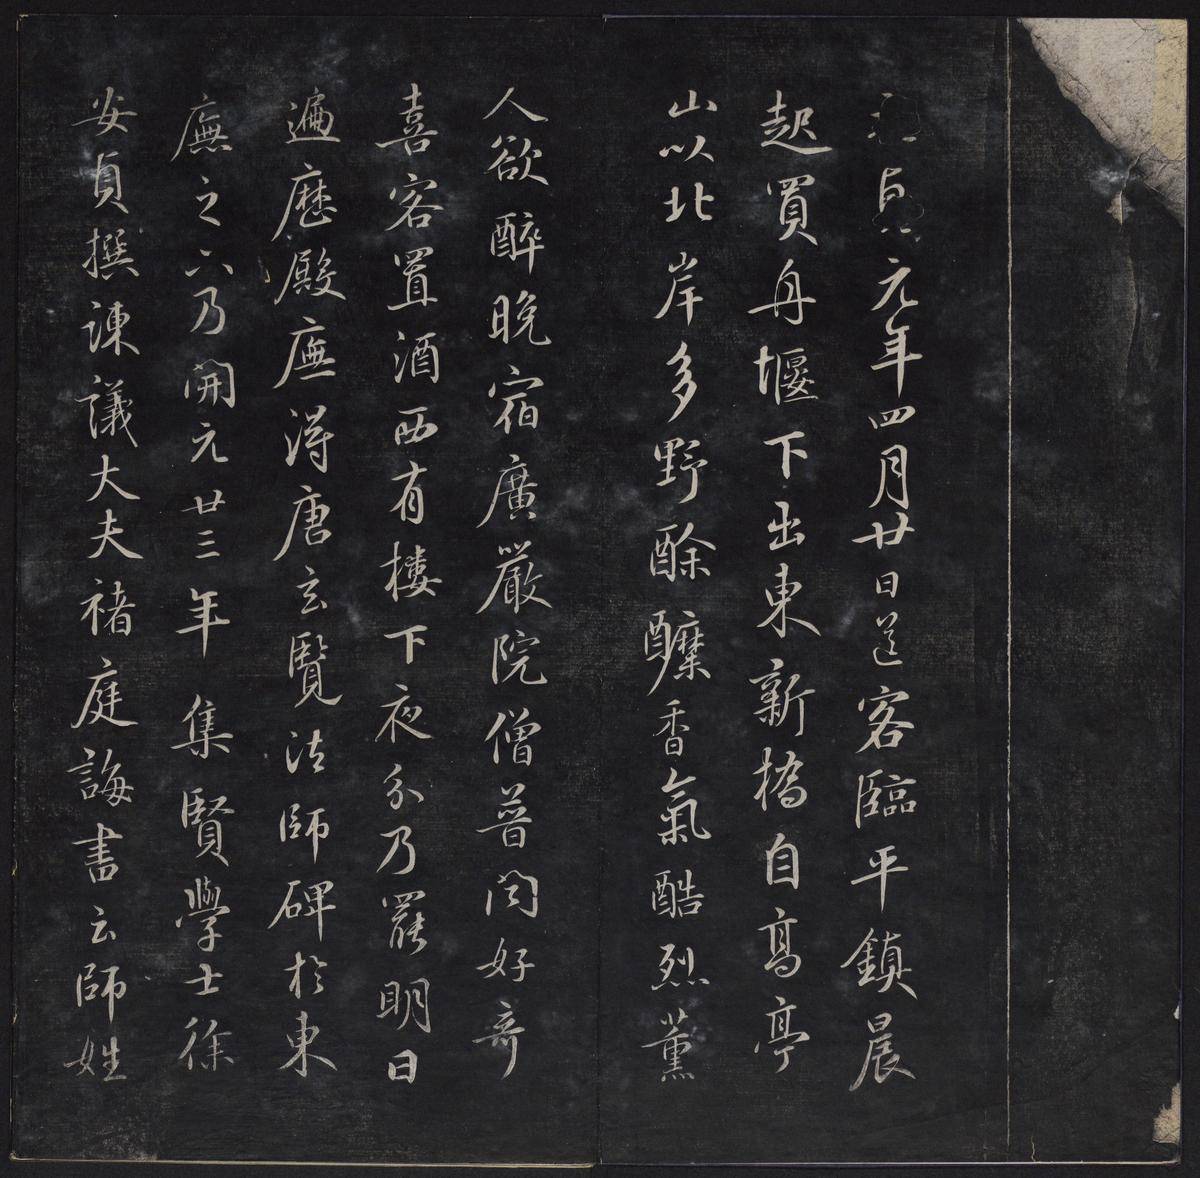 貞元年四月廿日送客臨平鎮晨
起買舟堰下出東新橋自高亭
山以北岸多野酴醾香氣酷烈薰
人欲醉晚宿廣嚴院僧普閏好奇
喜客置酒西有樓下夜分乃罷明日
遍歷殿廡得唐玄覽法師碑於東
廡之穴乃開元廿三年集賢學士徐
安貞撰諫議大夫褚庭誨書云師姓